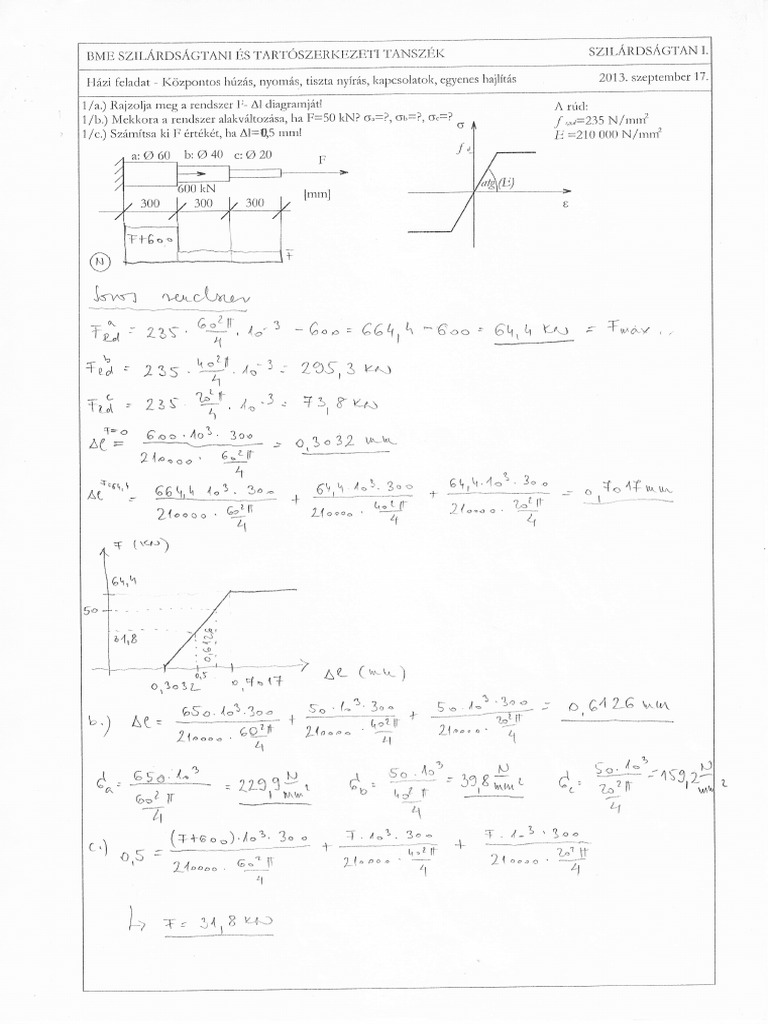 BME SZILÁRDSÁGTANI ÉS TARTÓSZERKEZETI TANSZÉK SZILÁRDSÁGTAN I.
Házi feladat - Központos húzás, nyomás, tiszta nyírás, kapcsolatok, egyenes hajlítás 2013. szeptember 17.
1/a.) Rajzolja meg a rendszer F- Δl diagramját!
1/b.) Mekkora a rendszer alakváltozása, ha F=50 kN? σa=?, σb=?, σc=?
1/c.) Számítsa ki F értékét, ha Δl=0,5 mm!
A rúd:
=235 N/mm²
E =210 000 N/mm²
a: Ø 60 b: Ø 40 c: Ø 20 F
600 kN
[mm]
300 300 300
F+600
F
N
σ
atg(E)
ε
Soros rendszer
F_ed^a = 235 · 60²π/4 · 10⁻³ - 600 = 664,4 - 600 = 64,4 kN = Fmax..
F_ed^b = 235 · 40²π/4 · 10⁻³ = 295,3 kN
F_ed^c = 235 · 20²π/4 · 10⁻³ = 73,8 kN
Δl^F=0 = 600·10³·300 / 210000 · 60²π/4 = 0,3032 mm
Δl^F=64,4 = 664,4·10³·300 / 210000 · 60²π/4 + 64,4·10³·300 / 210000 · 40²π/4 + 64,4·10³·300 / 210000 · 20²π/4 = 0,7017 mm
F (kN)
64,4
50
31,8
0,6126
0,5
0,3032 0,7017 Δl (mm)
b.) Δl = 650·10³·300 / 210000 · 60²π/4 + 50·10³·300 / 210000 · 40²π/4 + 50·10³·300 / 210000 · 20²π/4 = 0,6126 mm
σa = 650·10³ / 60²π/4 = 229,9 N/mm² σb = 50·10³ / 40²π/4 = 39,8 N/mm² σc = 50·10³ / 20²π/4 = 159,2 N/mm²
c.) 0,5 = (F+600)·10³·300 / 210000 · 60²π/4 + F·10³·300 / 210000 · 40²π/4 + F·10³·300 / 210000 · 20²π/4
↳ F = 31,8 kN